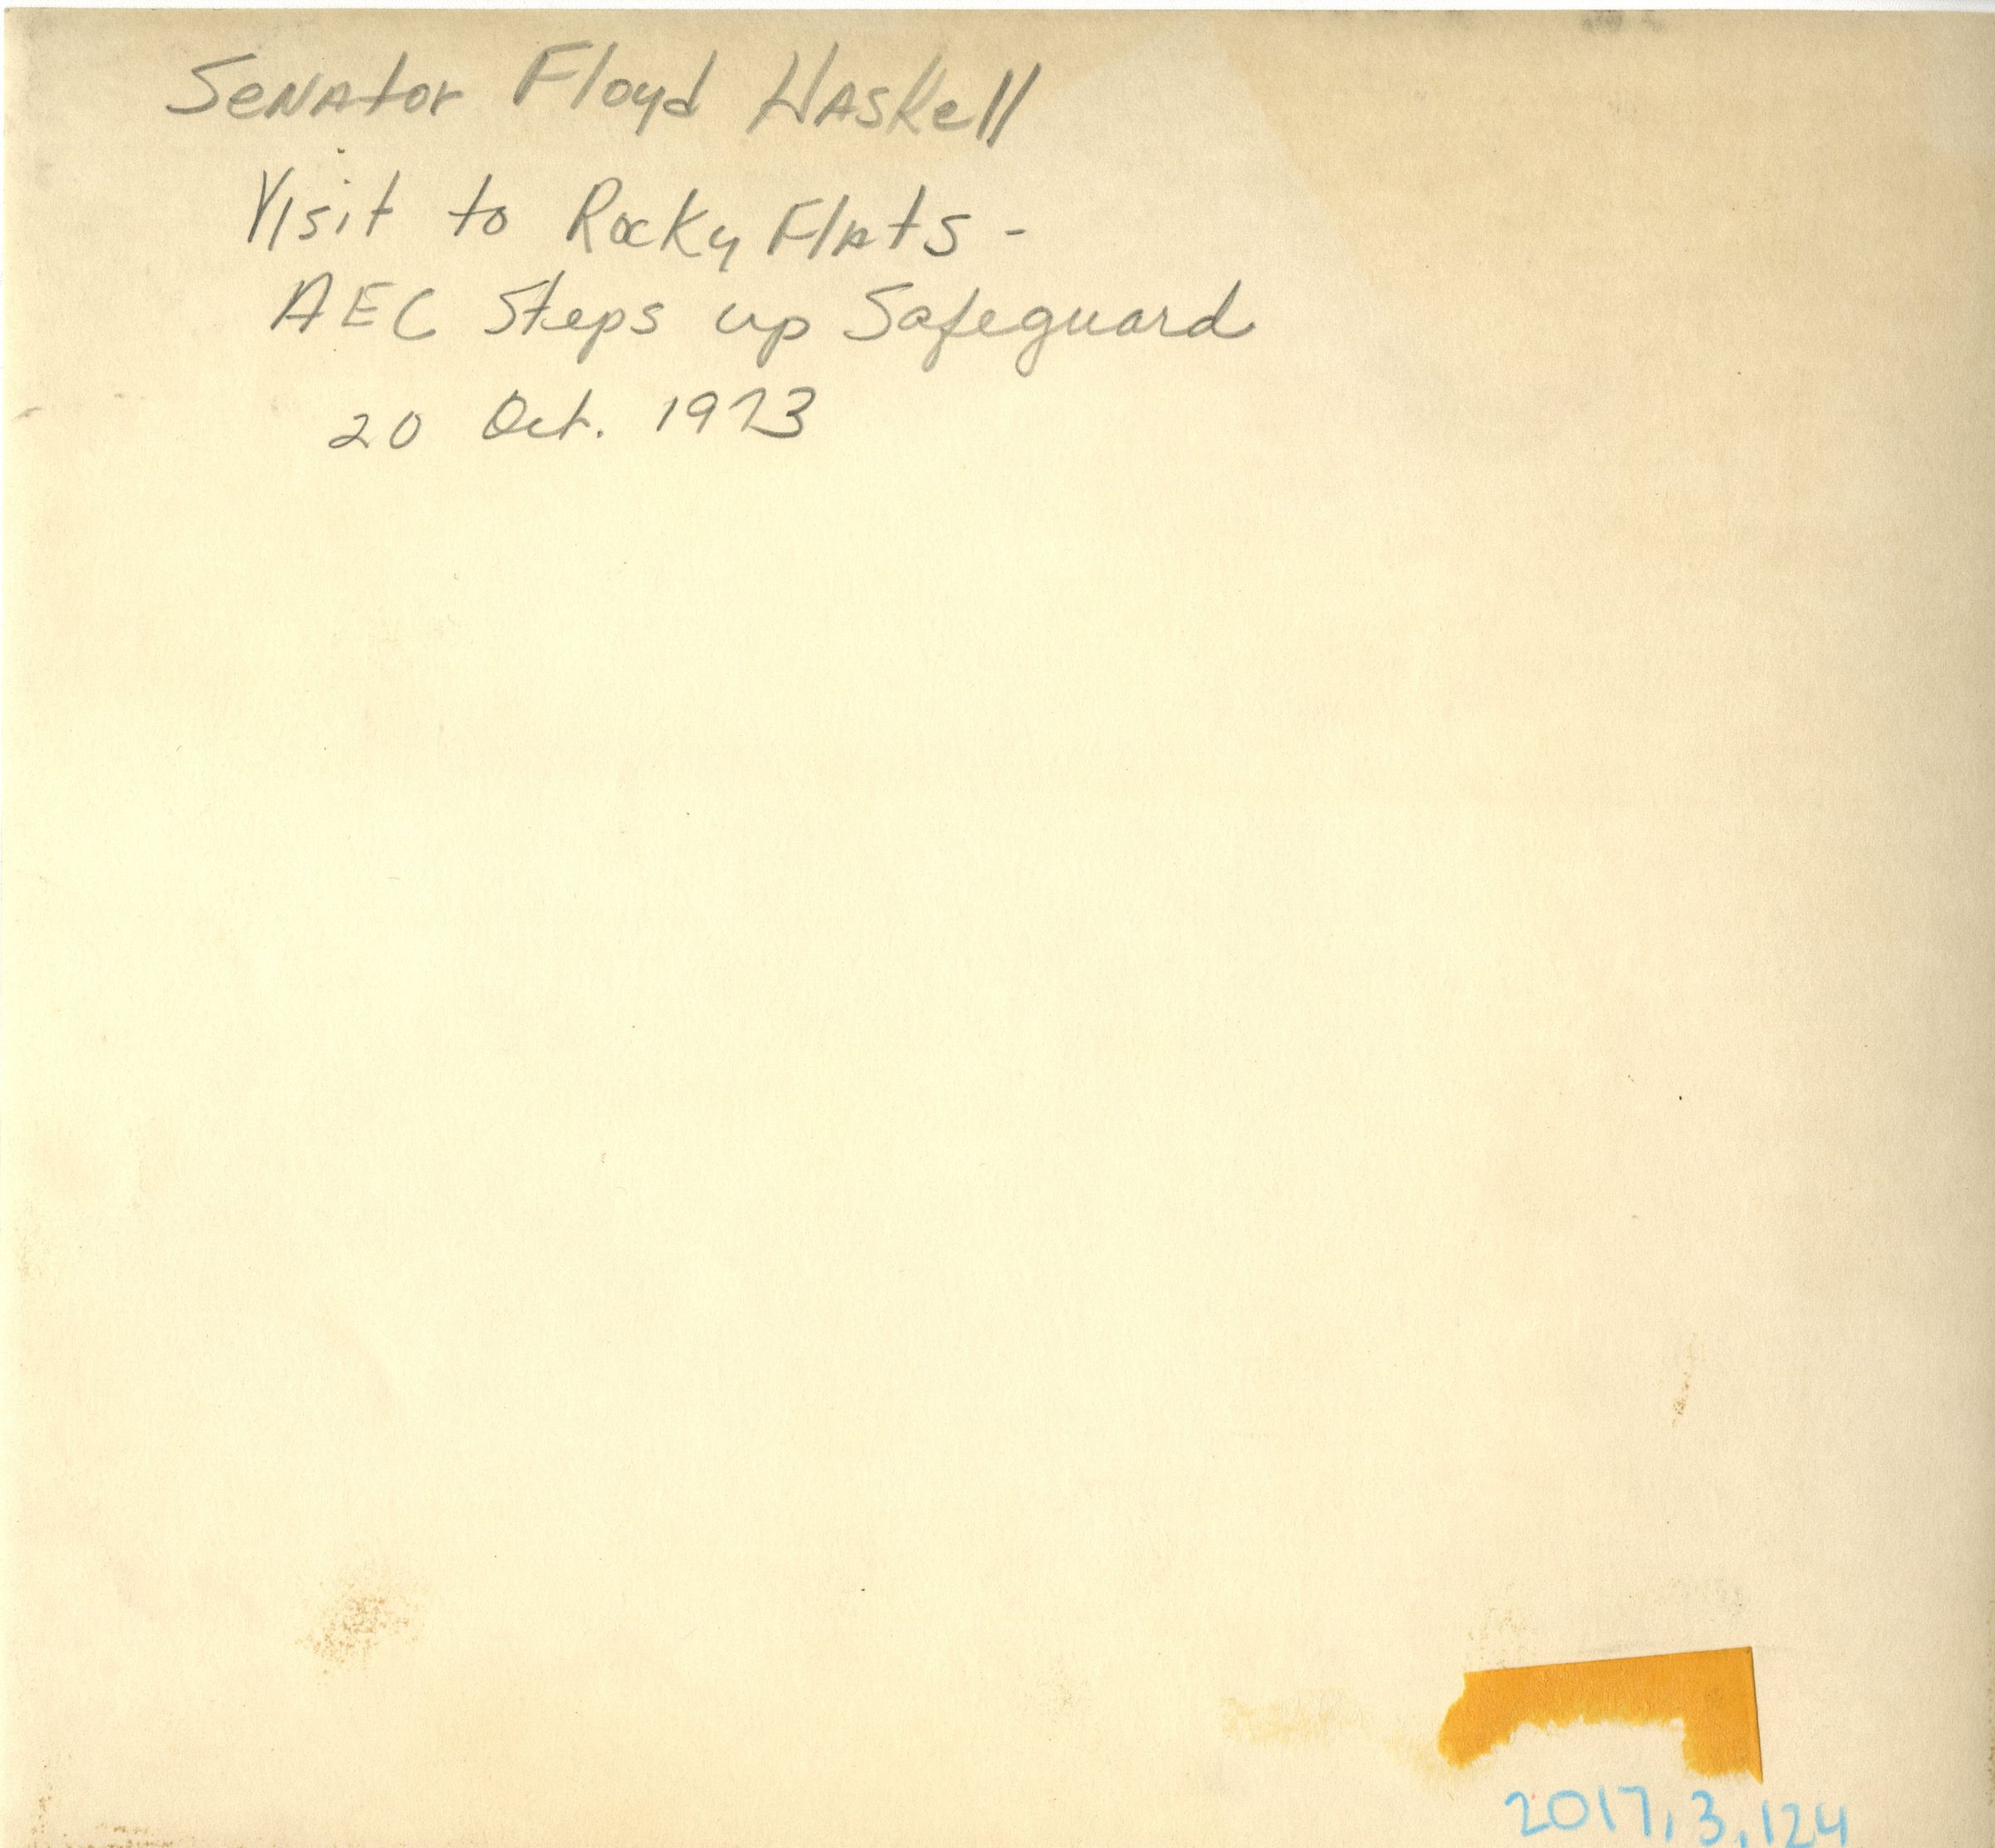 Senator Floyd Haskell
Visit to Rocky Flats -
AEC Steps up Safeguard
20 Oct. 1973
2017.3.124